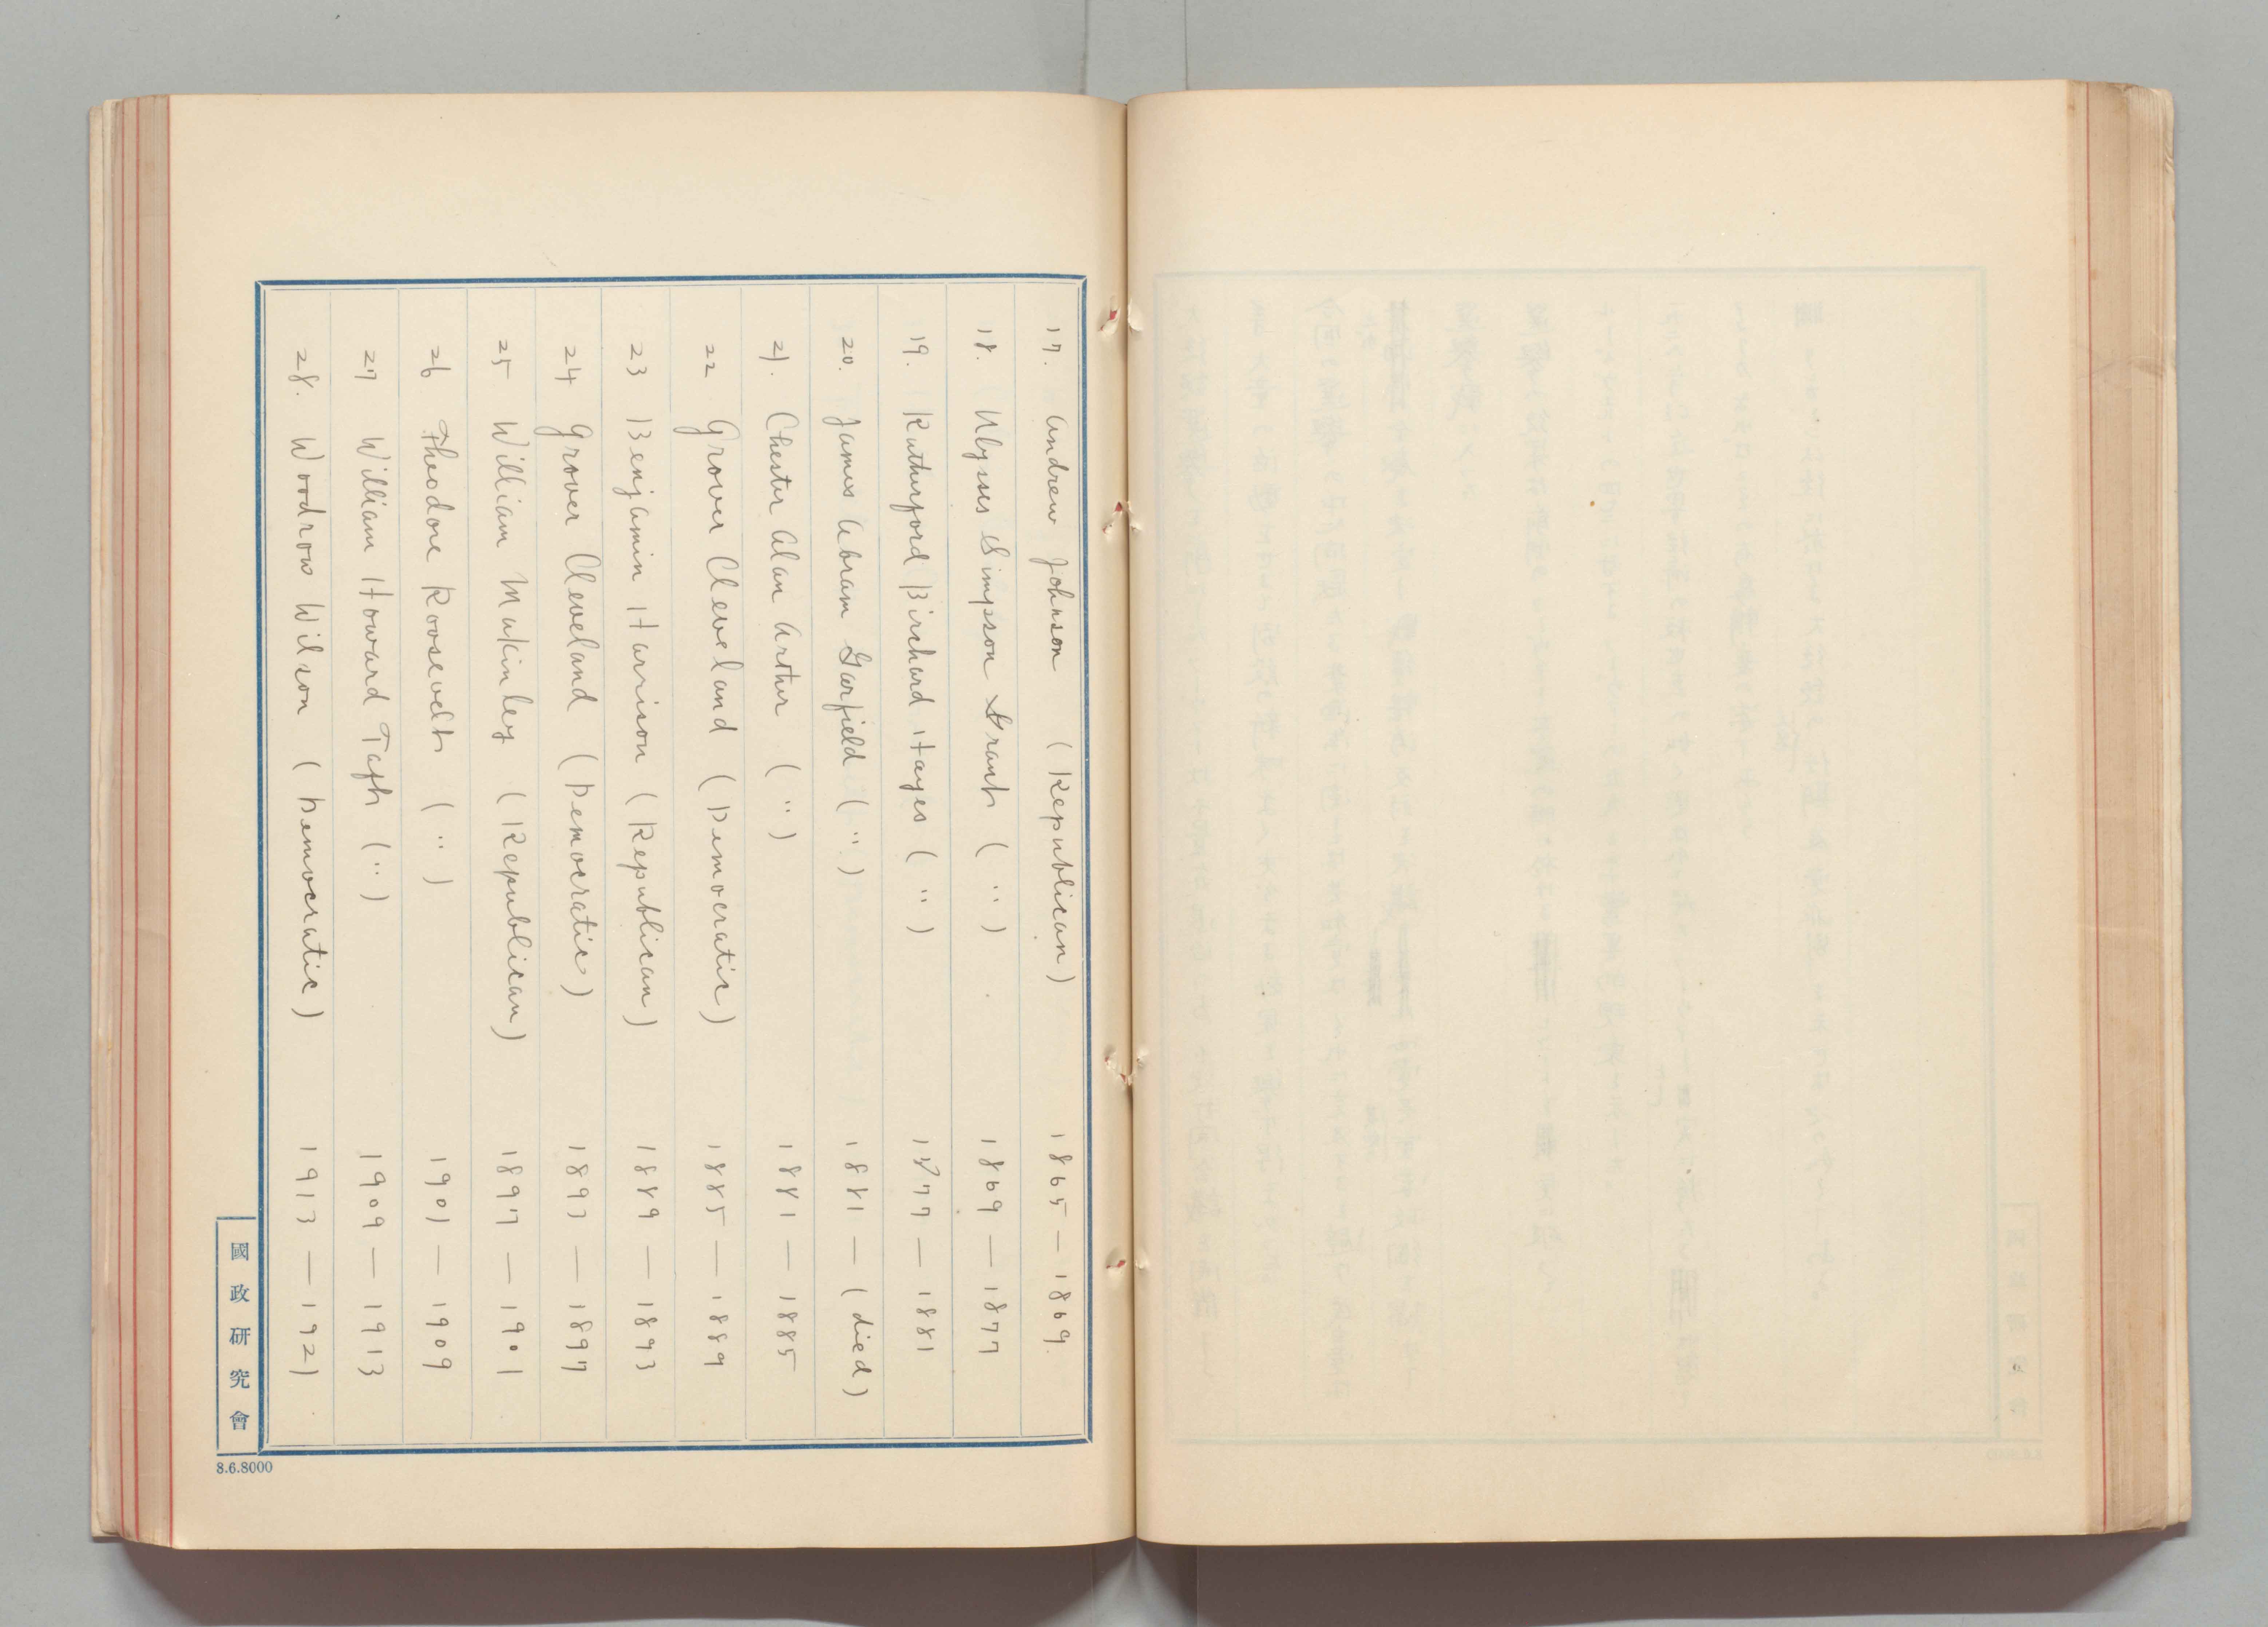 17. Andrew Johnson (Republican) 1865 — 1869.
18. Ulysses Simpson Grant ( 〃 ) 1869 — 1877
19. Rutherford Birchard Hayes ( 〃 ) 1877 — 1881
20. James Abram Garfield ( 〃 ) 1881 — (died)
21. Chester Alan Arther ( 〃 ) 1881 — 1885
22 Grover Cleveland (Democratic) 1885 — 1889
23 Benjamin Harrison (Republican) 1889 — 1893
24 Grover Cleveland (Democratic) 1893 — 1897
25 William Makinley (Republican) 1897 — 1901
26 Theodore Roosevelt ( 〃 ) 1901 — 1909
27 William Howard Taft ( 〃 ) 1909 — 1913
28. Woodrow Wilson (Democratic) 1913 — 1921
國政研究會
8.6.8000